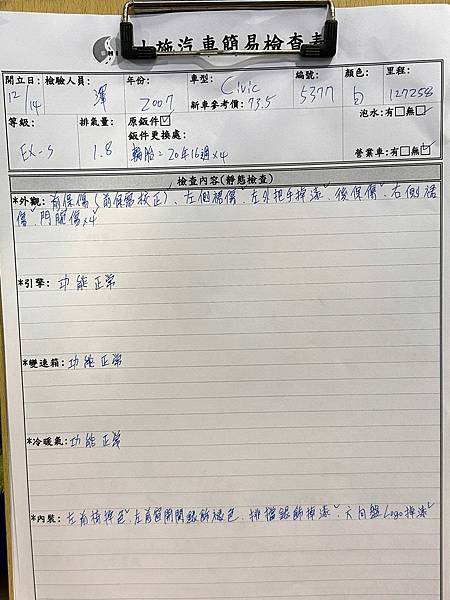 小施汽車簡易檢查表
開立日: 檢驗人員: 年份: 車型: Civic 編號: 顏色: 里程:
12/14 澤 2007 新車參考價: 73.5 5377 白 127258
等級: 排氣量: 原鈑件☑ 泡水:有□無☑
鈑件更換處:
EX-S 1.8 輪胎=20年16週x4 營業車:有□無☑
檢查內容(靜態檢查)
*外觀: 前保傷(前保需校正)、左側裙傷、左外把手掉漆、後保傷、右側裙
傷、門腿傷x4
*引擎: 功能正常
*變速箱: 功能正常
*冷暖氣: 功能正常
*內裝: 左前椅掉色、左前窗開關銀飾褪色、排檔銀飾掉漆、方向盤Logo掉漆